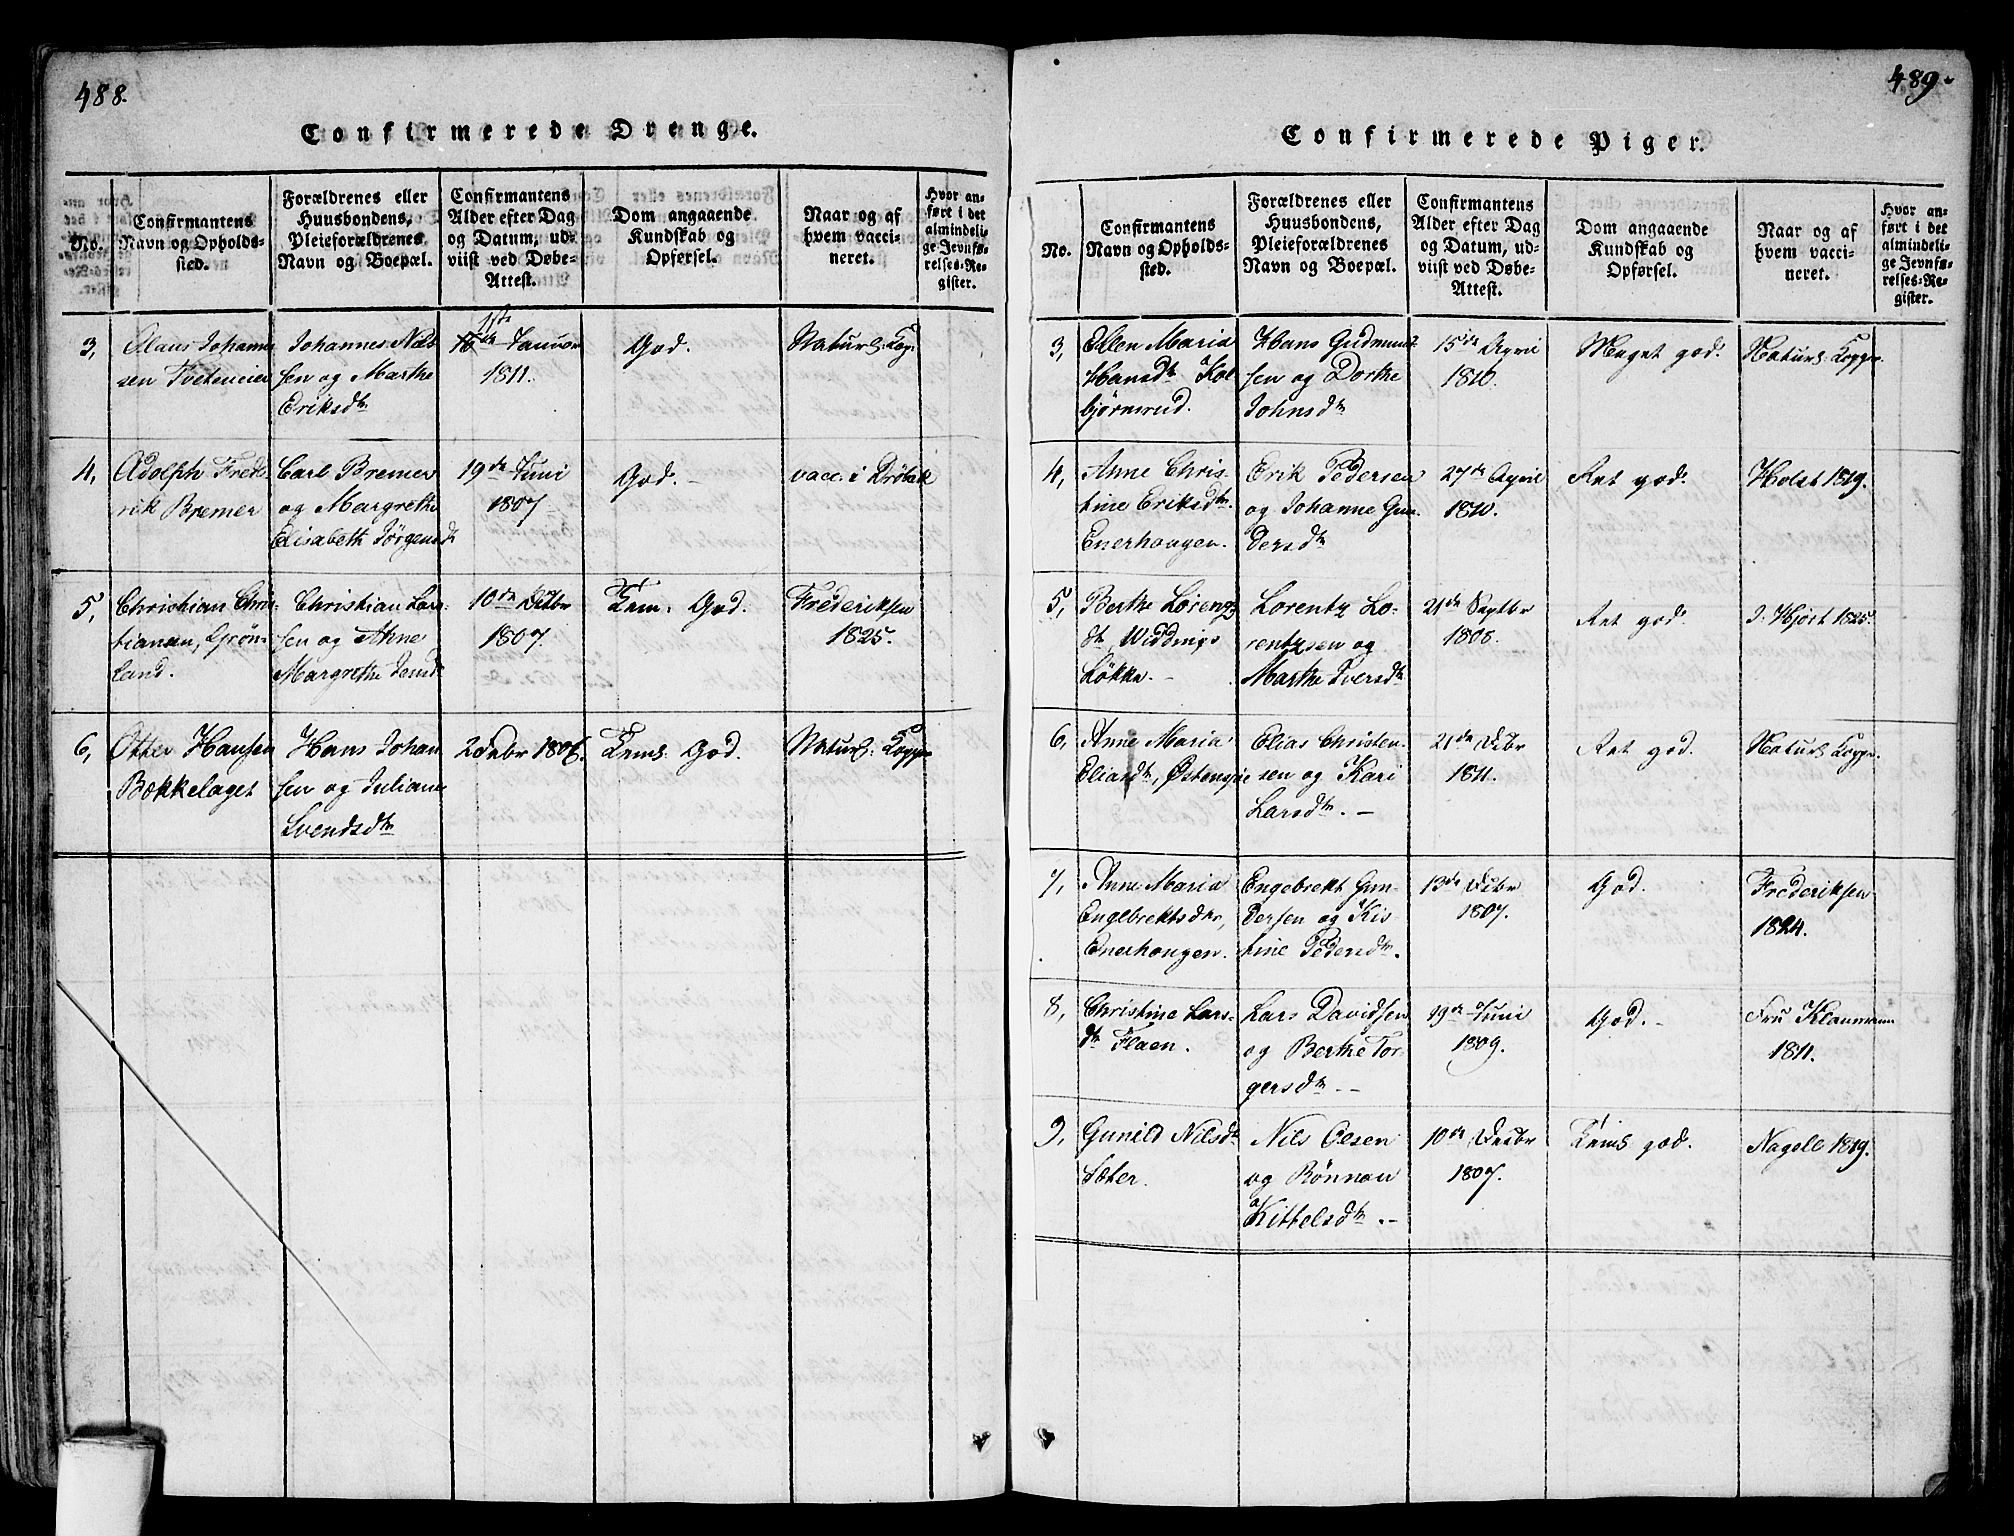 488.
Confirmerede Drenge.
No.
Confirmantens
Navn og Opholds-
sted.
Forældrenes eller
Huusbondens,
Pleieforældrenes
Navn og Boepæl.
Confirmantens
Alder efter Dag
og Datum, ud-
viist ved Døbe-
Attest.
Dom angaaende
Kundskab og
Opførsel.
Naar og af
hvem vacci-
neret.
Hvor an-
ført i det
almindeli-
ge Jevnfø-
relses-Re-
gister.
3,
Olaus Johanne
sen Tveteneier
Johannes Nils
sen og Marthe
Eriksdtr
1ste
Januar
1811.
God.
Naturl. Kop.
4,
Adolph Frede
rik Bremer
Carl Bremer
og Margrethe
Elisabeth Jörgensd
19de Juni
1807
God. -
vacc. i Dröbak
5,
Christian Chris-
tiansen, Grön-
land.
Christian Lar-
sen og Anne
Margrethe Jansd
10de Octbr
1807.
Tem. God.
Frederiksen
1825.
6,
Otter Hansen
Bækkelaget
Hans Johan
sen og Juliane
Svendsdtr
1806.
Tems. God.
Naturl. Kopp
489.
Confirmerede Piger.
No.
Confirmantens
Navn og Opholds-
sted.
Forældrenes eller
Huusbondens,
Pleieforældrenes
Navn og Boepæl.
Confirmantens
Alder efter Dag
og Datum, ud-
viist ved Døbe-
Attest.
Dom angaaende
Kundskab og
Opførsel.
Naar og af
hvem vacci-
neret.
Hvor an-
ført i det
almindeli-
ge Jevnfø-
relses-Re-
gister.
3,
Ellen Maria
Hansdtr Kol
björnsrud.
Hans Gudmund
sen og Dorthe
Johnsdtr
15de April
1810.
Meget god.
Naturl. Kopper.
4,
Anne Chris-
tine Eriksdtr.
Enerhaugen.
Erik Pedersen
og Johanne Gun
dersdtr
27de April
1810.
Ret god.
Holst 1819.
5,
Berthe Lorentz
dtr, Widdings
Lökke. -
Lorentz Lo-
rentzsen og
Marthe Iversdtr
21de Septbr
1808.
Ret god.
J. Hjort 1825.
6,
Anne Maria
Eliasdtr, Østensjøe
Elias Christen-
sen og Kari
Larsdtr. -
21de
1811.
Ret god.
Naturl. Kopper.
7,
Anne Maria
Engebrektsdtr,
Enerhaugen.
Engebrekt Gun-
dersen og Kis-
tine Pedersdtr.
13de Octbr
1807.
God.
Frederiksen
1824.
8,
Christine Lars-
dtr Flaen.
Lars Davidsen
og Berthe Tor-
gersdtr. -
19de Juni
1809.
God. -
Fru Klaumann
1811.
9,
Gunild Nilsdtr
Sæter.
Nils Olsen
og Rönnau
Kittelsdtr. -
10de Octbr
1807.
Tems god.
Nagell 1819.